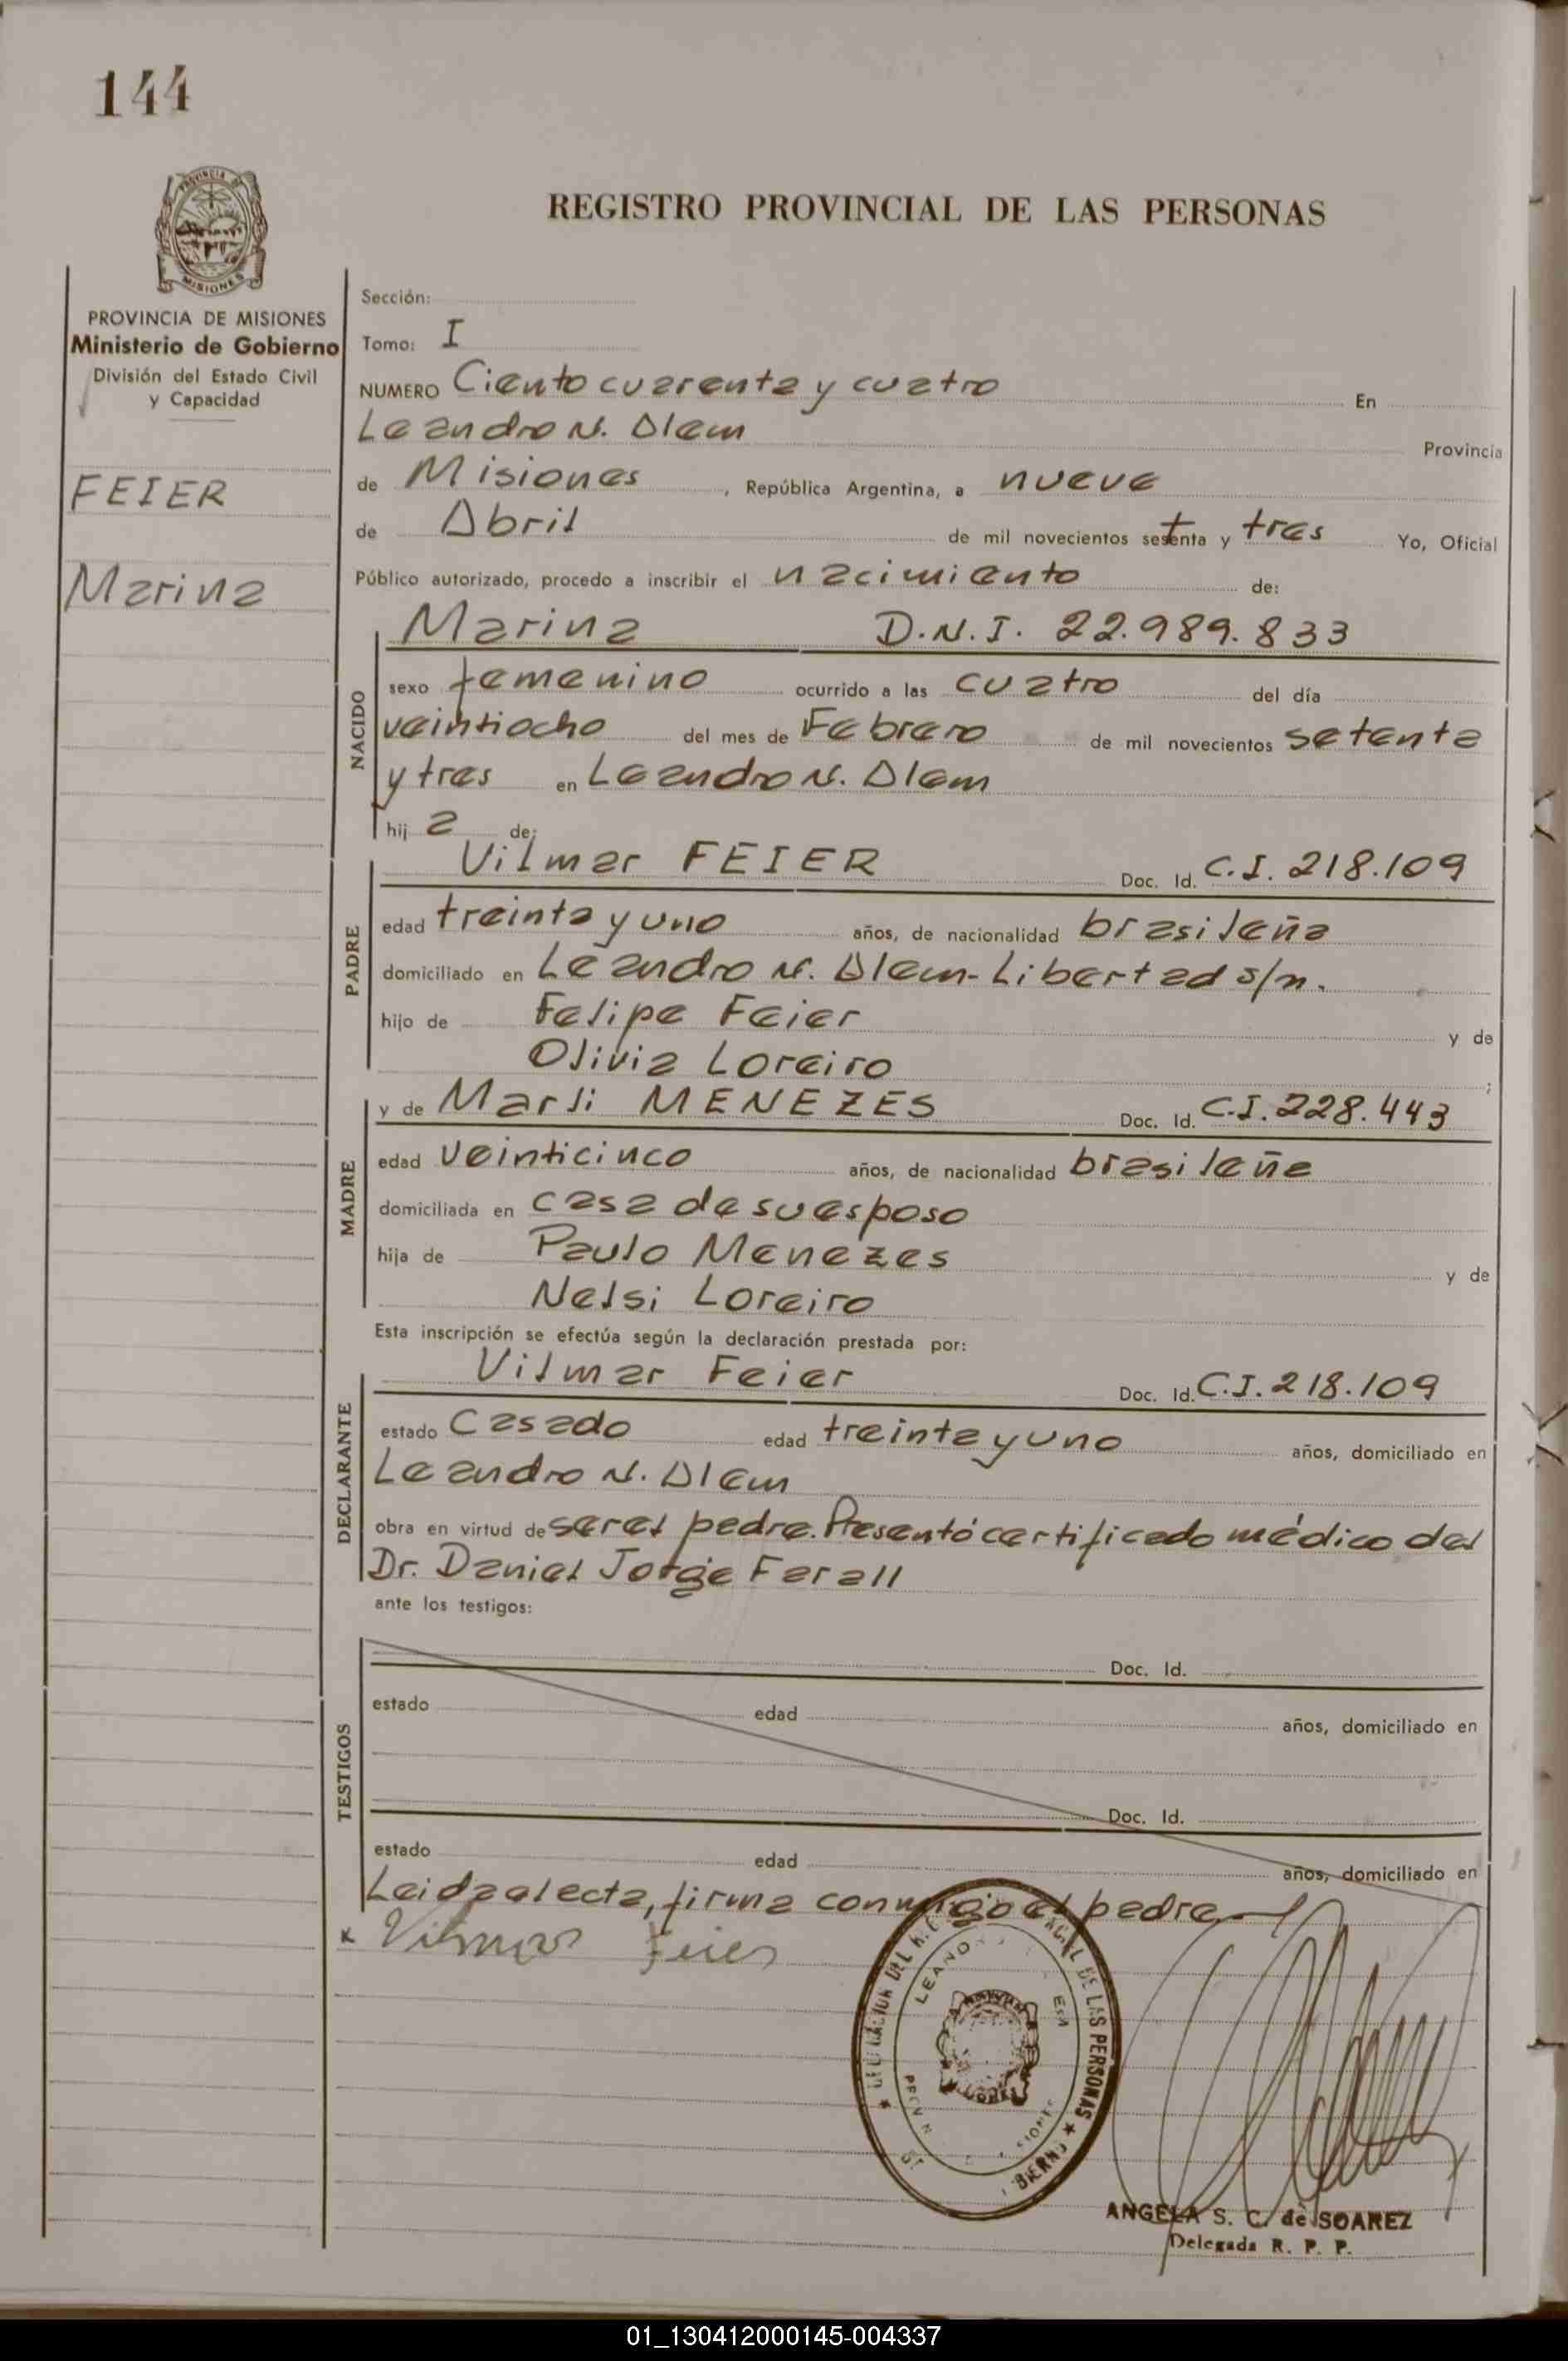 144
PROVINCIA DE
MISIONES
REGISTRO PROVINCIAL DE LAS PERSONAS
PROVINCIA DE MISIONES
Ministerio de Gobierno
División del Estado Civil
y Capacidad
FEIER
Marina
Sección:
Tomo: I
NUMERO Ciento cuarenta y cuatro En
Leandro N. Alem Provincia
de Misiones, República Argentina, a nueve
de Abril de mil novecientos setenta y tres Yo, Oficial
Público autorizado, procedo a inscribir el nacimiento de:
NACIDO
Marina D.N.I. 22.989.833
sexo femenino ocurrido a las cuatro del día
veintiocho del mes de Febrero de mil novecientos setenta
y tres en Leandro N. Alem
hij a de:
PADRE
Vilmar FEIER Doc. Id. C.I. 218.109
edad treinta y uno años, de nacionalidad brasileña
domiciliado en Leandro N. Alem-Libertad s/n.
hijo de Felipe Feier y de
Olivia Loreiro ;
MADRE
y de Marli MENEZES Doc. Id. C.I. 228.443
edad veinticinco años, de nacionalidad brasileña
domiciliada en casa de su esposo
hija de Paulo Menezes y de
Nelsi Loreiro
Esta inscripción se efectúa según la declaración prestada por:
DECLARANTE
Vilmar Feier Doc. Id. C.I. 218.109
estado Casado edad treinta y uno años, domiciliado en
Leandro N. Alem
obra en virtud de ser el padre. Presentó certificado médico del
Dr. Daniel Jorge Farall
ante los testigos:
TESTIGOS
Doc. Id.
estado edad años, domiciliado en
Doc. Id.
estado edad años, domiciliado en
Leida al acta, firma conmigo el padre
x Vilmar Feier
DE LAS PERSONAS
ANGELA S. C. de SOAREZ
Delegada R. P. P.
01_130412000145-004337